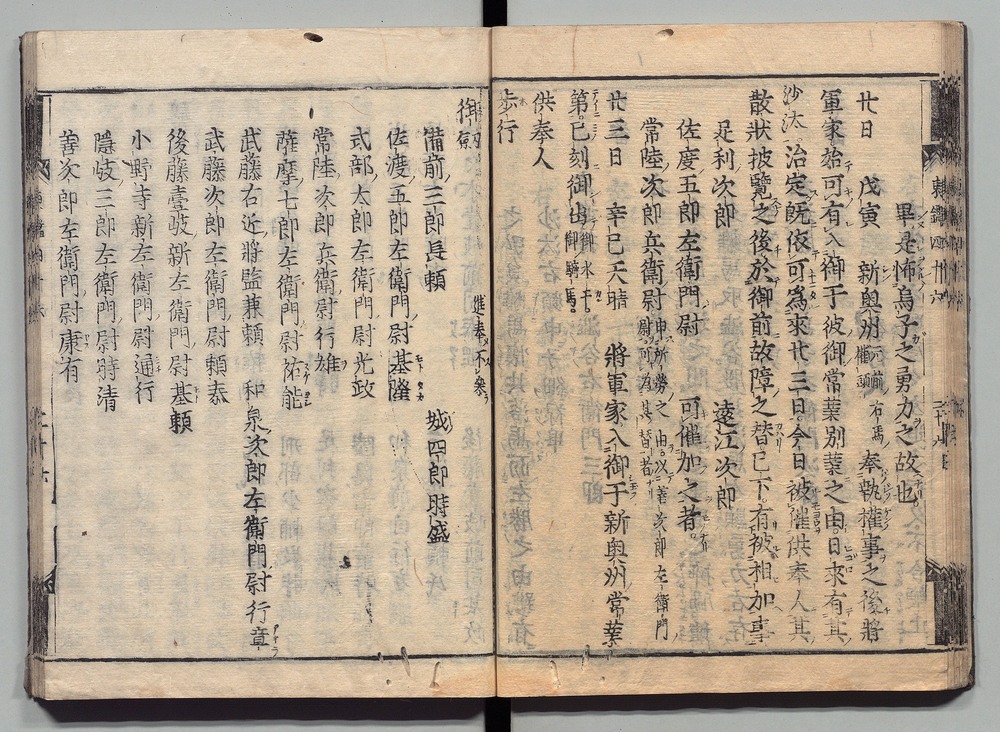 畢是怖烏子之勇力之故也
廿日 戊寅 新奥州 奉執權事之後將
軍家始可有入御于彼御常葉別業之由日來有其
沙汰治定既依可爲來廿三日今日被催供奉人其
散状披覽之後於御前故障之替已下有被相加事
足利次郎 遠江次郎
佐度五郎左衛門尉 可催加之者
常陸次郎兵衛尉 申所勞之由以善次郎左衛門尉可爲其替者
廿三日 辛巳天晴 將軍家入御于新奥州常葉
第巳刻御出 御水干御騎馬
供奉人
歩行
御釼 進奉不參
備前三郎長頼 城四郎時盛
佐渡五郎左衛門尉基隆
式部太郎左衛門尉光政
常陸次郎兵衛尉行雄
薩摩七郎左衛門尉祐能
武藤右近將監兼頼 和泉次郎左衛門尉行章
武藤次郎左衛門尉頼泰
後藤壹歧新左衛門尉基頼
小野寺新左衛門尉通行
隱歧三郎左衛門尉時清
善次郎左衛門尉康有